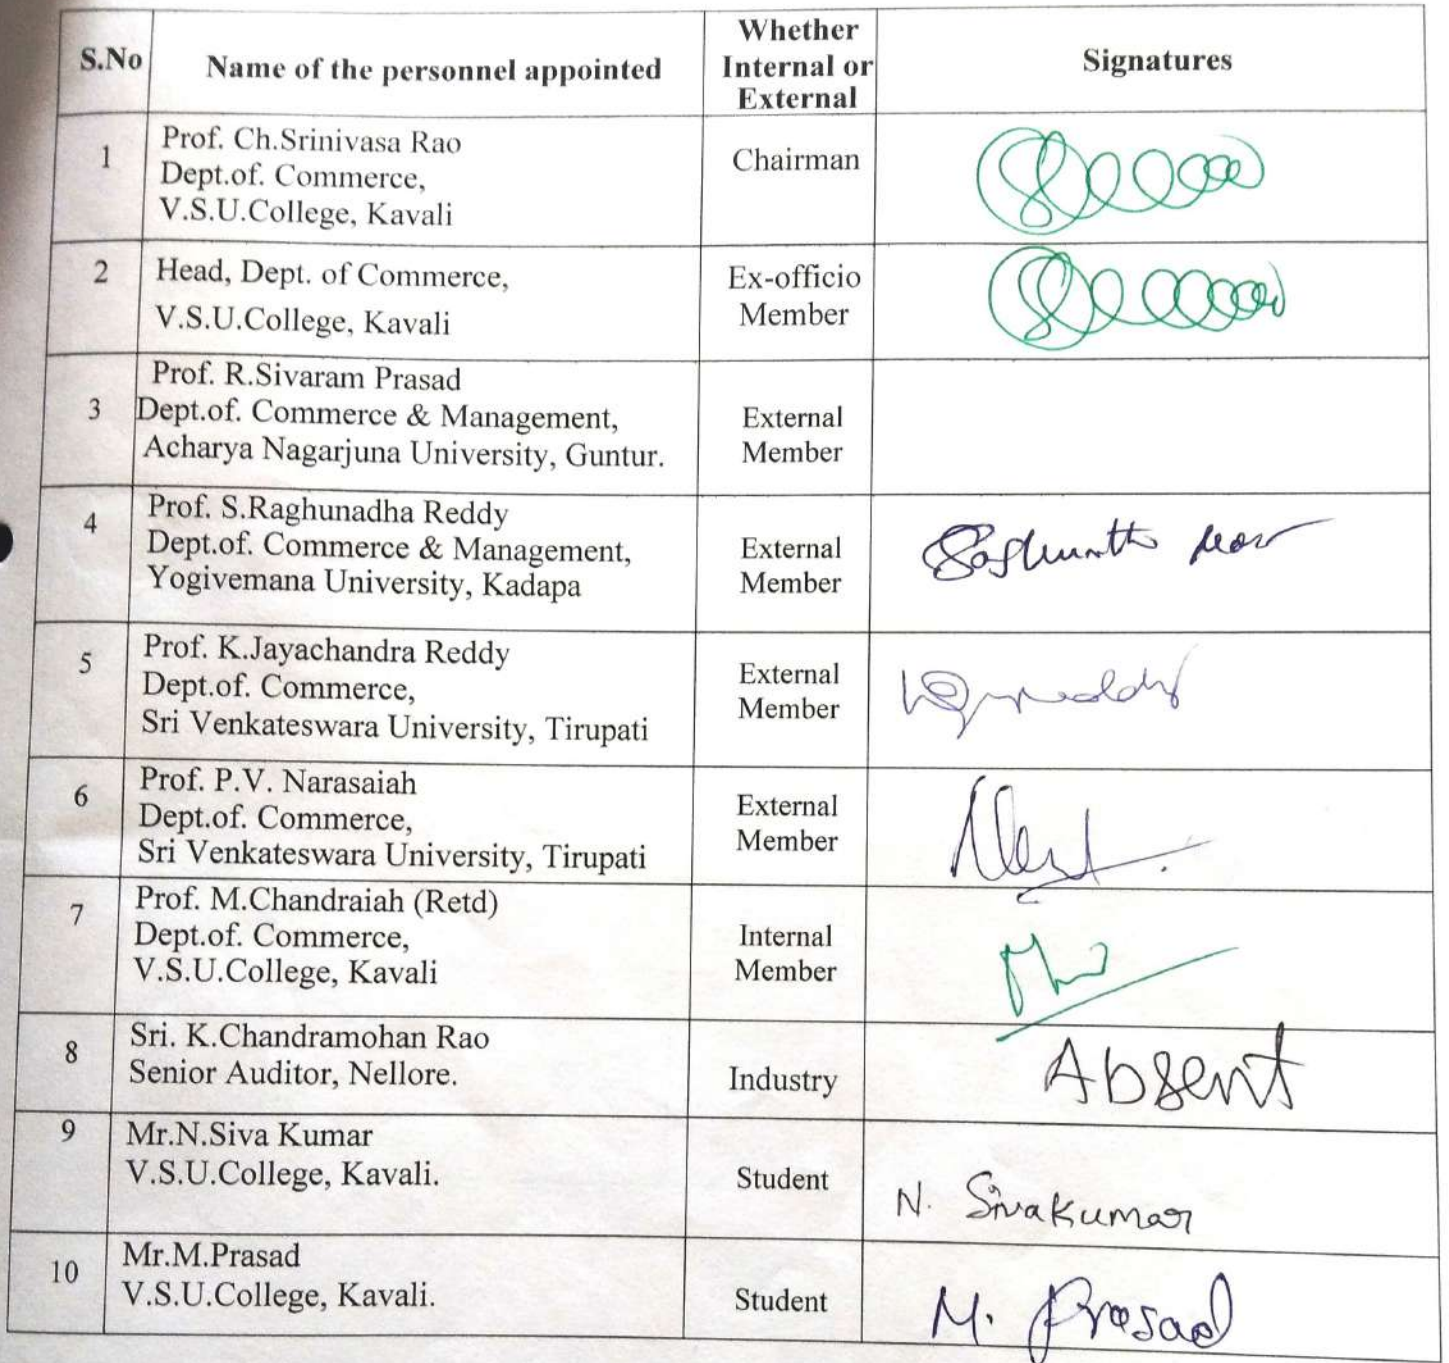 S.No
Name of the personnel appointed
Whether
Internal or
External
Signatures
1
Prof. Ch.Srinivasa Rao
Dept.of. Commerce,
V.S.U.College, Kavali
Chairman
2
Head, Dept. of Commerce,
V.S.U.College, Kavali
Ex-officio
Member
3
Prof. R.Sivaram Prasad
Dept.of. Commerce & Management,
Acharya Nagarjuna University, Guntur.
External
Member
4
Prof. S.Raghunadha Reddy
Dept.of. Commerce & Management,
Yogivemana University, Kadapa
External
Member
5
Prof. K.Jayachandra Reddy
Dept.of. Commerce,
Sri Venkateswara University, Tirupati
External
Member
6
Prof. P.V. Narasaiah
Dept.of. Commerce,
Sri Venkateswara University, Tirupati
External
Member
7
Prof. M.Chandraiah (Retd)
Dept.of. Commerce,
V.S.U.College, Kavali
Internal
Member
8
Sri. K.Chandramohan Rao
Senior Auditor, Nellore.
Industry
Absent
9
Mr.N.Siva Kumar
V.S.U.College, Kavali.
Student
N. Sivakumar
10
Mr.M.Prasad
V.S.U.College, Kavali.
Student
M. Prasad